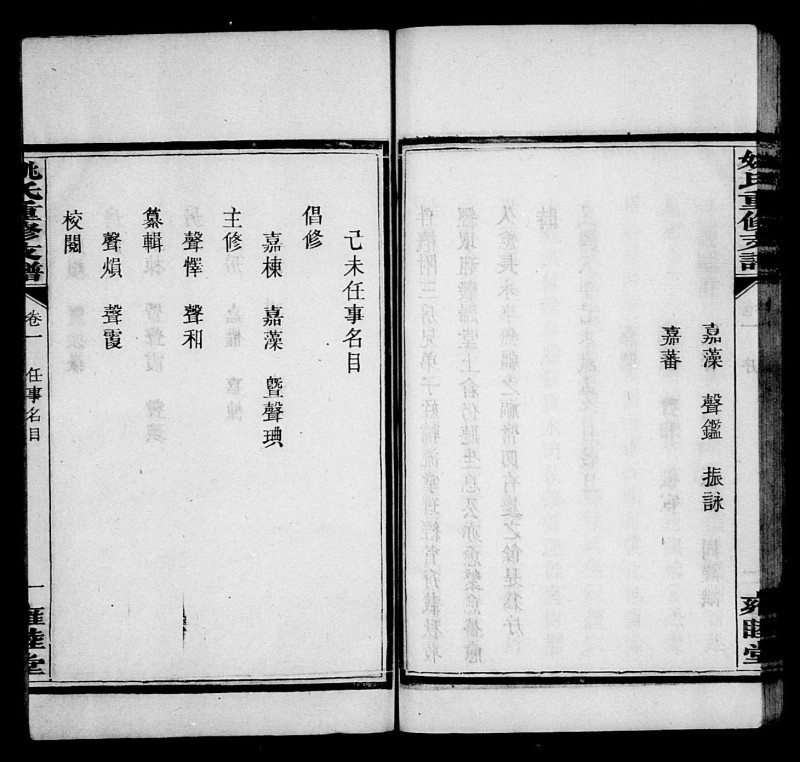 姚氏重修支譜
雍睦堂
嘉藻 聲鑑 振詠
嘉蕃
己未任事名目
倡修
嘉棟 嘉藻 暨聲琠
主修
聲懌 聲和
纂輯
聲熉 聲霞
校閱
姚氏重修支譜 卷一 任事名目 一 雍睦堂